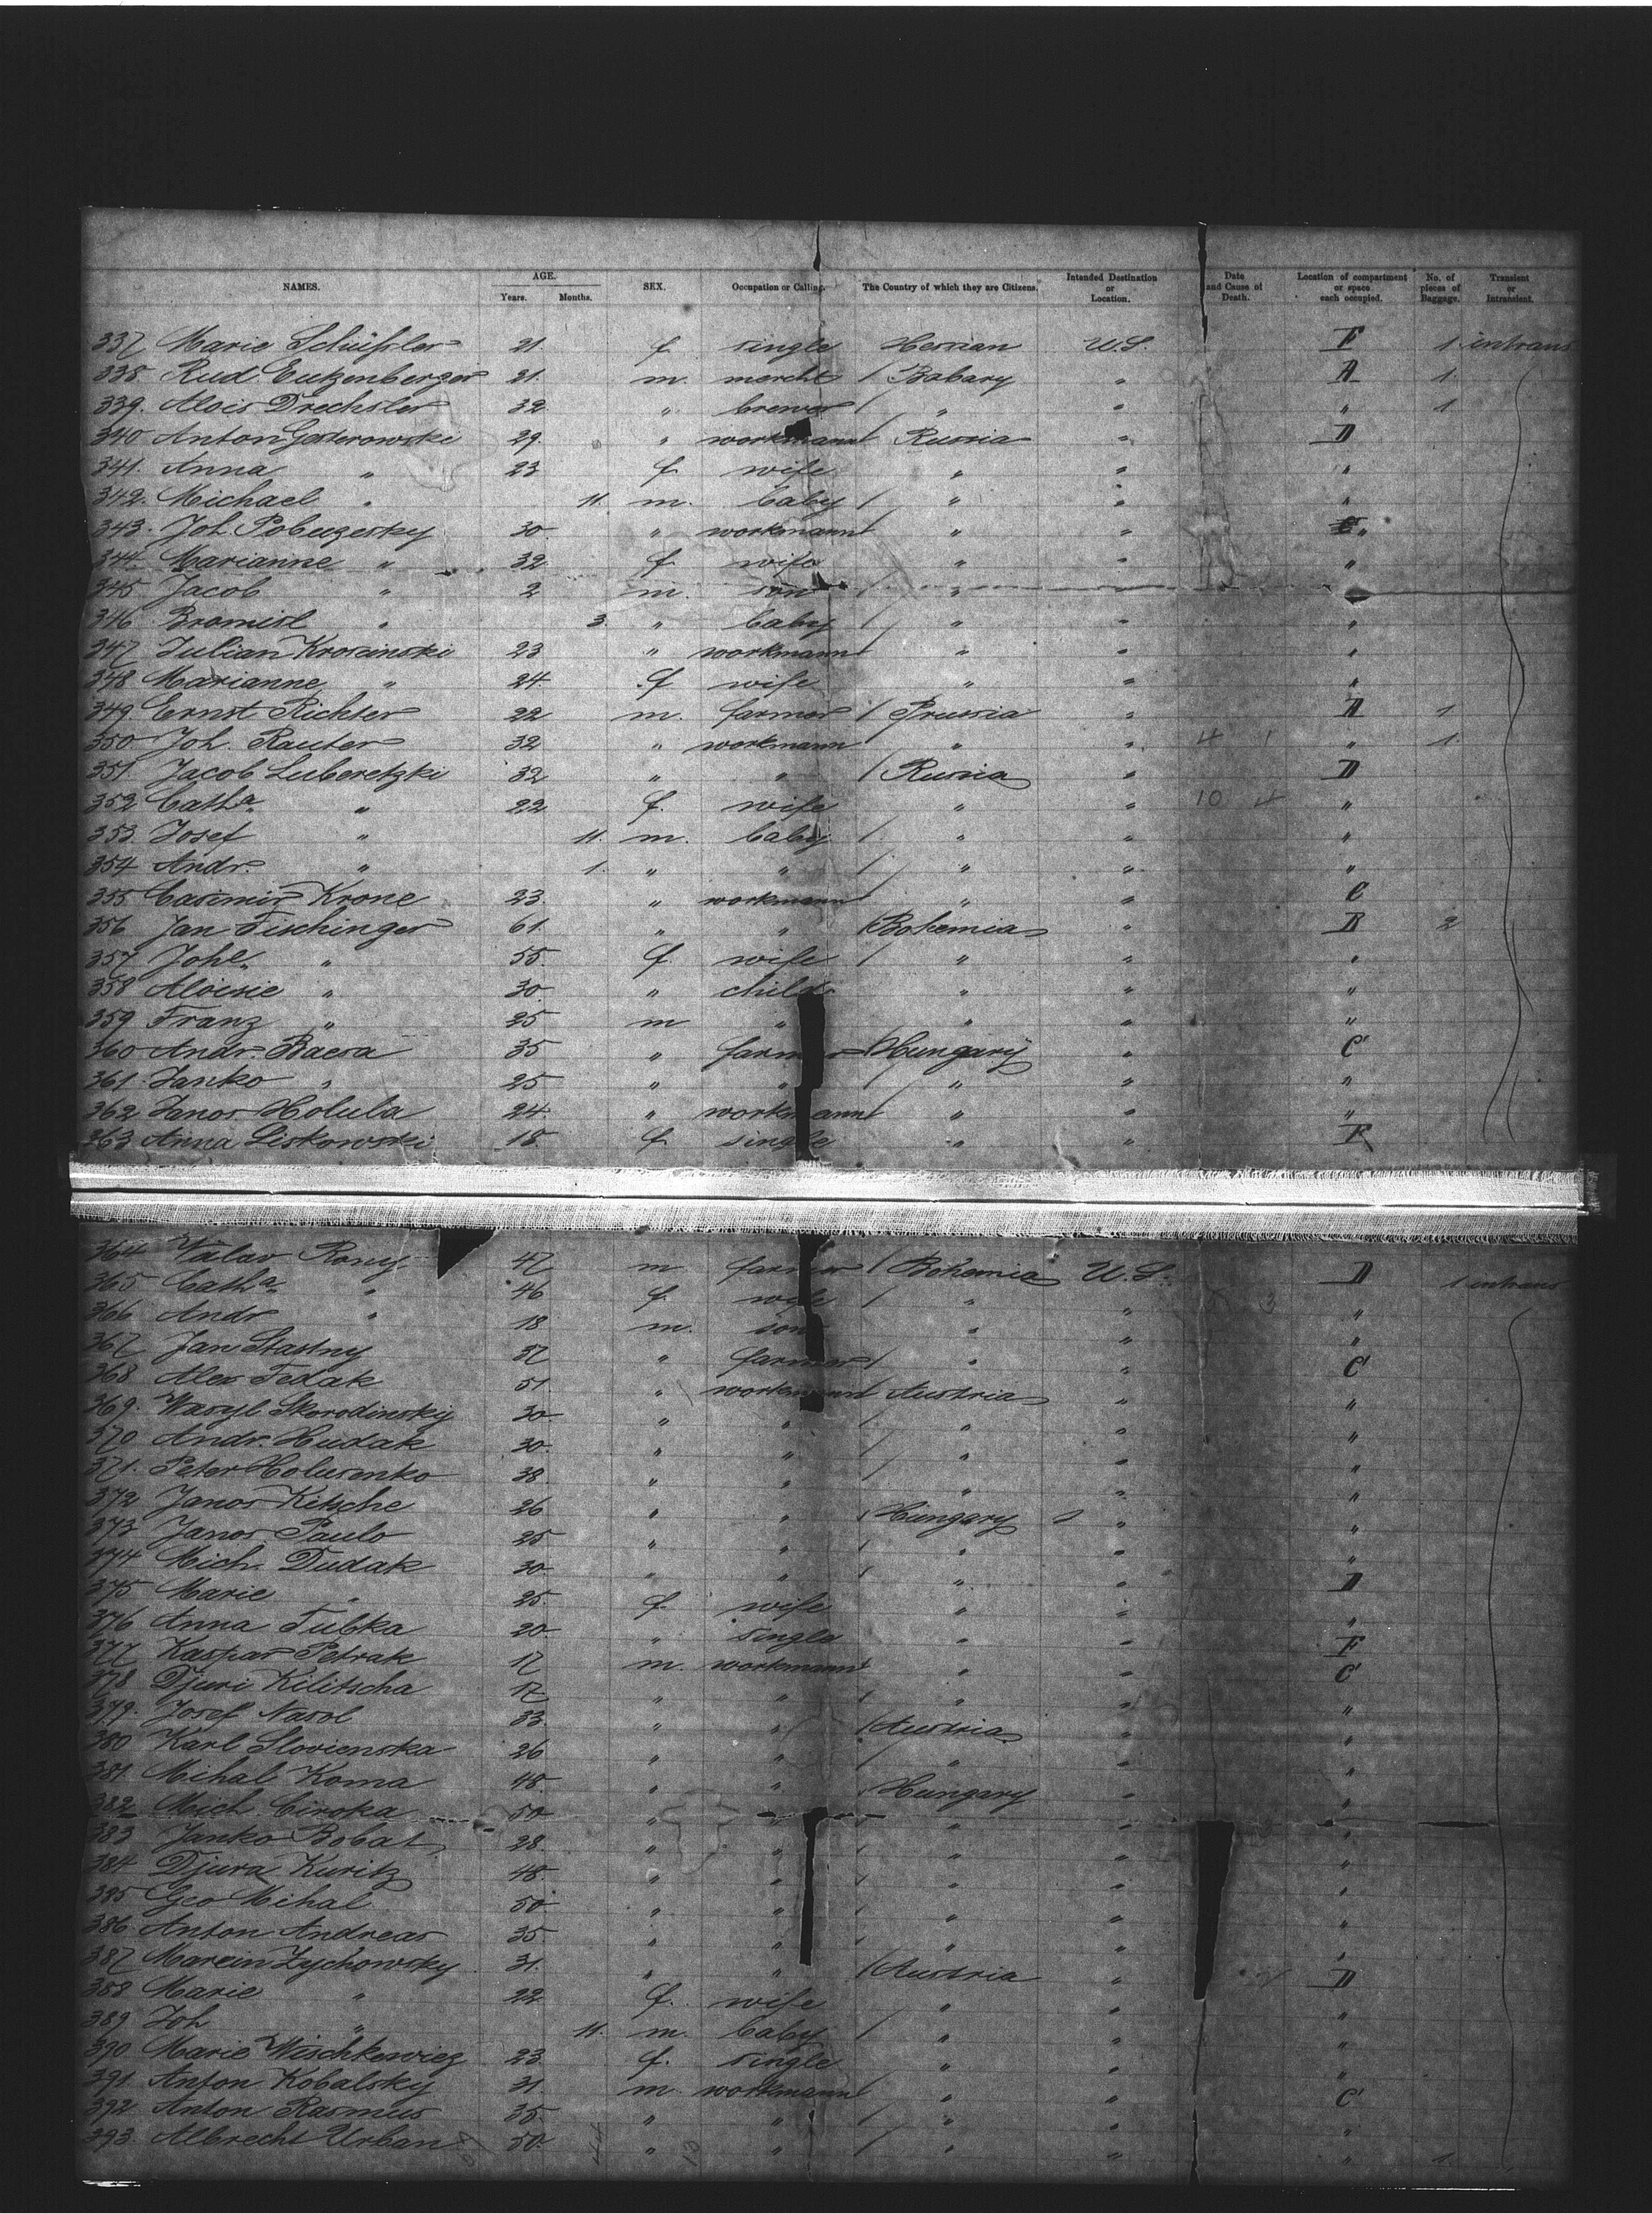 NAMES. AGE. Years. Months. SEX. Occupation or Calling. The Country of which they are Citizens. Intended Destination or Location. Date and Cause of Death. Location of compartment or space each occupied. No. of pieces of Baggage. Transient or Intransient.
337 Marie Schüssler 21 f. single Hessian U.S. F 1 intrans
338. Rud. Eutzenberger 21. m. mercht / Babary " A 1.
339. Alois Drechsler 32 " brewer / " " " 1
340 Anton Gesterowski 29. " workmann / Russia " D
341. Anna " 23 f. wife " " "
342. Michael " 11. m. baby / " " "
343. Joh. Pobuzesky 30. " workmann / " " "
344. Marianne " 32 f. wife " " "
345 Jacob " 2 m. son / "
346 Bromisl " 3. " baby / " " "
347 Julian Kroscinski 23 " workmann / " " "
348 Marianne " 24. f wife " " "
349. Ernst Richter 22 m. farmer / Prussia " A 1
350 Joh. Rauter 32 " workmann " " 4 1 " 1.
351. Jacob Luberetzki 32 " " / Russia " D
352 Catha " 22 f. wife " " 10 4 "
353. Josef " 11. m. baby / " " "
354 Andr. " 1. " " / " " "
355 Casimir Krone 23. " workmann " " C
356 Jan Fischinger 61. " " / Bohemia " B 2
357 Johe. " 55. f. wife / " " "
358 Aloisie " 30. " child " " "
359 Franz " 25 m " " " "
360 Andr. Bacsa 35 " farmer / Hungary " C
361. Janko " 25 " " / " " "
362 Janos Holula 24. " workmann / " " "
363 Anna Liskowski 18 f. single " " F
364 Valav Rony 47 m. farmer / Bohemia U.S. D 1 intrans
365 Catha " 46 f. wife / " " 3 "
366 Andr " 18 m. son " " "
367 Jan Stastny 37 " farmer / " " C
368 Alex Fedak 51. " workmann / Austria " "
369. Wasyl Skorodinskij 30 " " / " " "
370 Andr. Hudak 30. " " / " " "
371. Peter Holusenko 38. " " / " " "
372 Janos Kitsche 26 " " / Hungary " "
373 Janos Paulo 25 " " / " " "
374 Mich. Dudak 30 " " / " " D
375 Marie " 25. f. wife " " "
376 Anna Tubka 20. " single " " F
377 Kaspar Petrak 17 m. workmann / " " C
378 Djuri Kilitscha 17 " " / " " "
379. Josef Nasol 33. " " / Austria " "
380 Karl Slovienska 26 " " / " " "
381. Mihal Koma 48. " " / Hungary " "
382 Mich. Ciroka 50 " " / " " "
383 Janko Bobal 28. " " / " " "
384 Djura Kuritz 48. " " / " " "
385 Geo Mihal 50. " " / " " "
386 Anton Andreas 35. " " / " " "
387 Marcin Zychowsky 31. " " / Austria " D
388 Marie " 22 f. wife " " "
389 Joh " 11. m. baby / " " "
390 Marie Wischkewicz 23 f. single " " "
391. Anton Kobalsky 31. m. workmann / " " C
392 Anton Rasmus 35. " " / " " "
393. Albrecht Urban 50. " " / " " " 1.